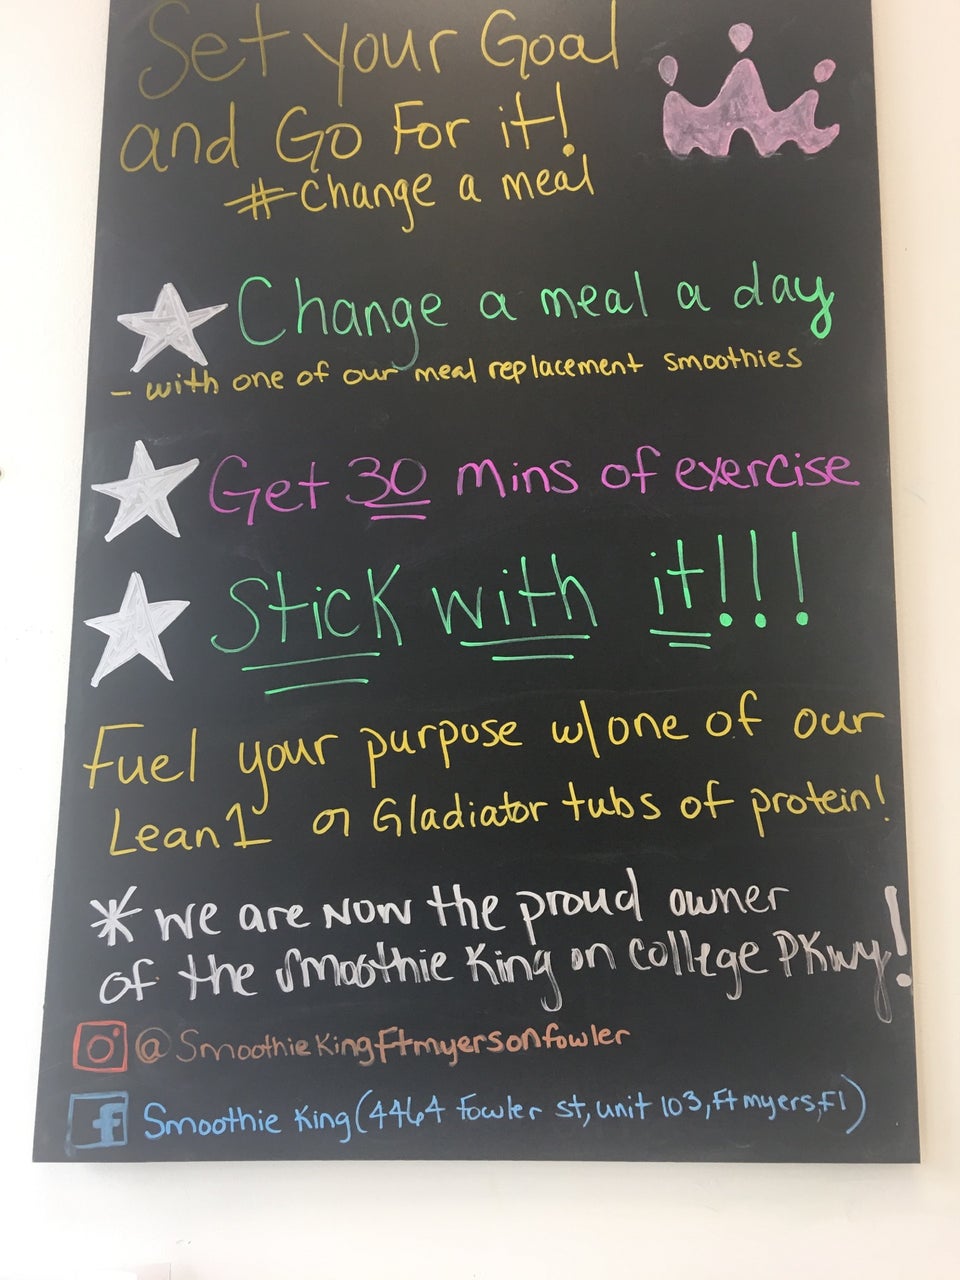 Set your Goal
and Go For it!
#Change a meal
Change a meal a day
- with one of our meal replacement smoothies
Get 30 mins of exercise
Stick with it!!!
Fuel your purpose w/one of our
Lean1 or Gladiator tubs of protein!
* We are now the proud owner
of the Smoothie King on College Pkwy!
@SmoothieKingFtmyersonfowler
Smoothie King (4464 Fowler st, unit 103, Ft myers, Fl)